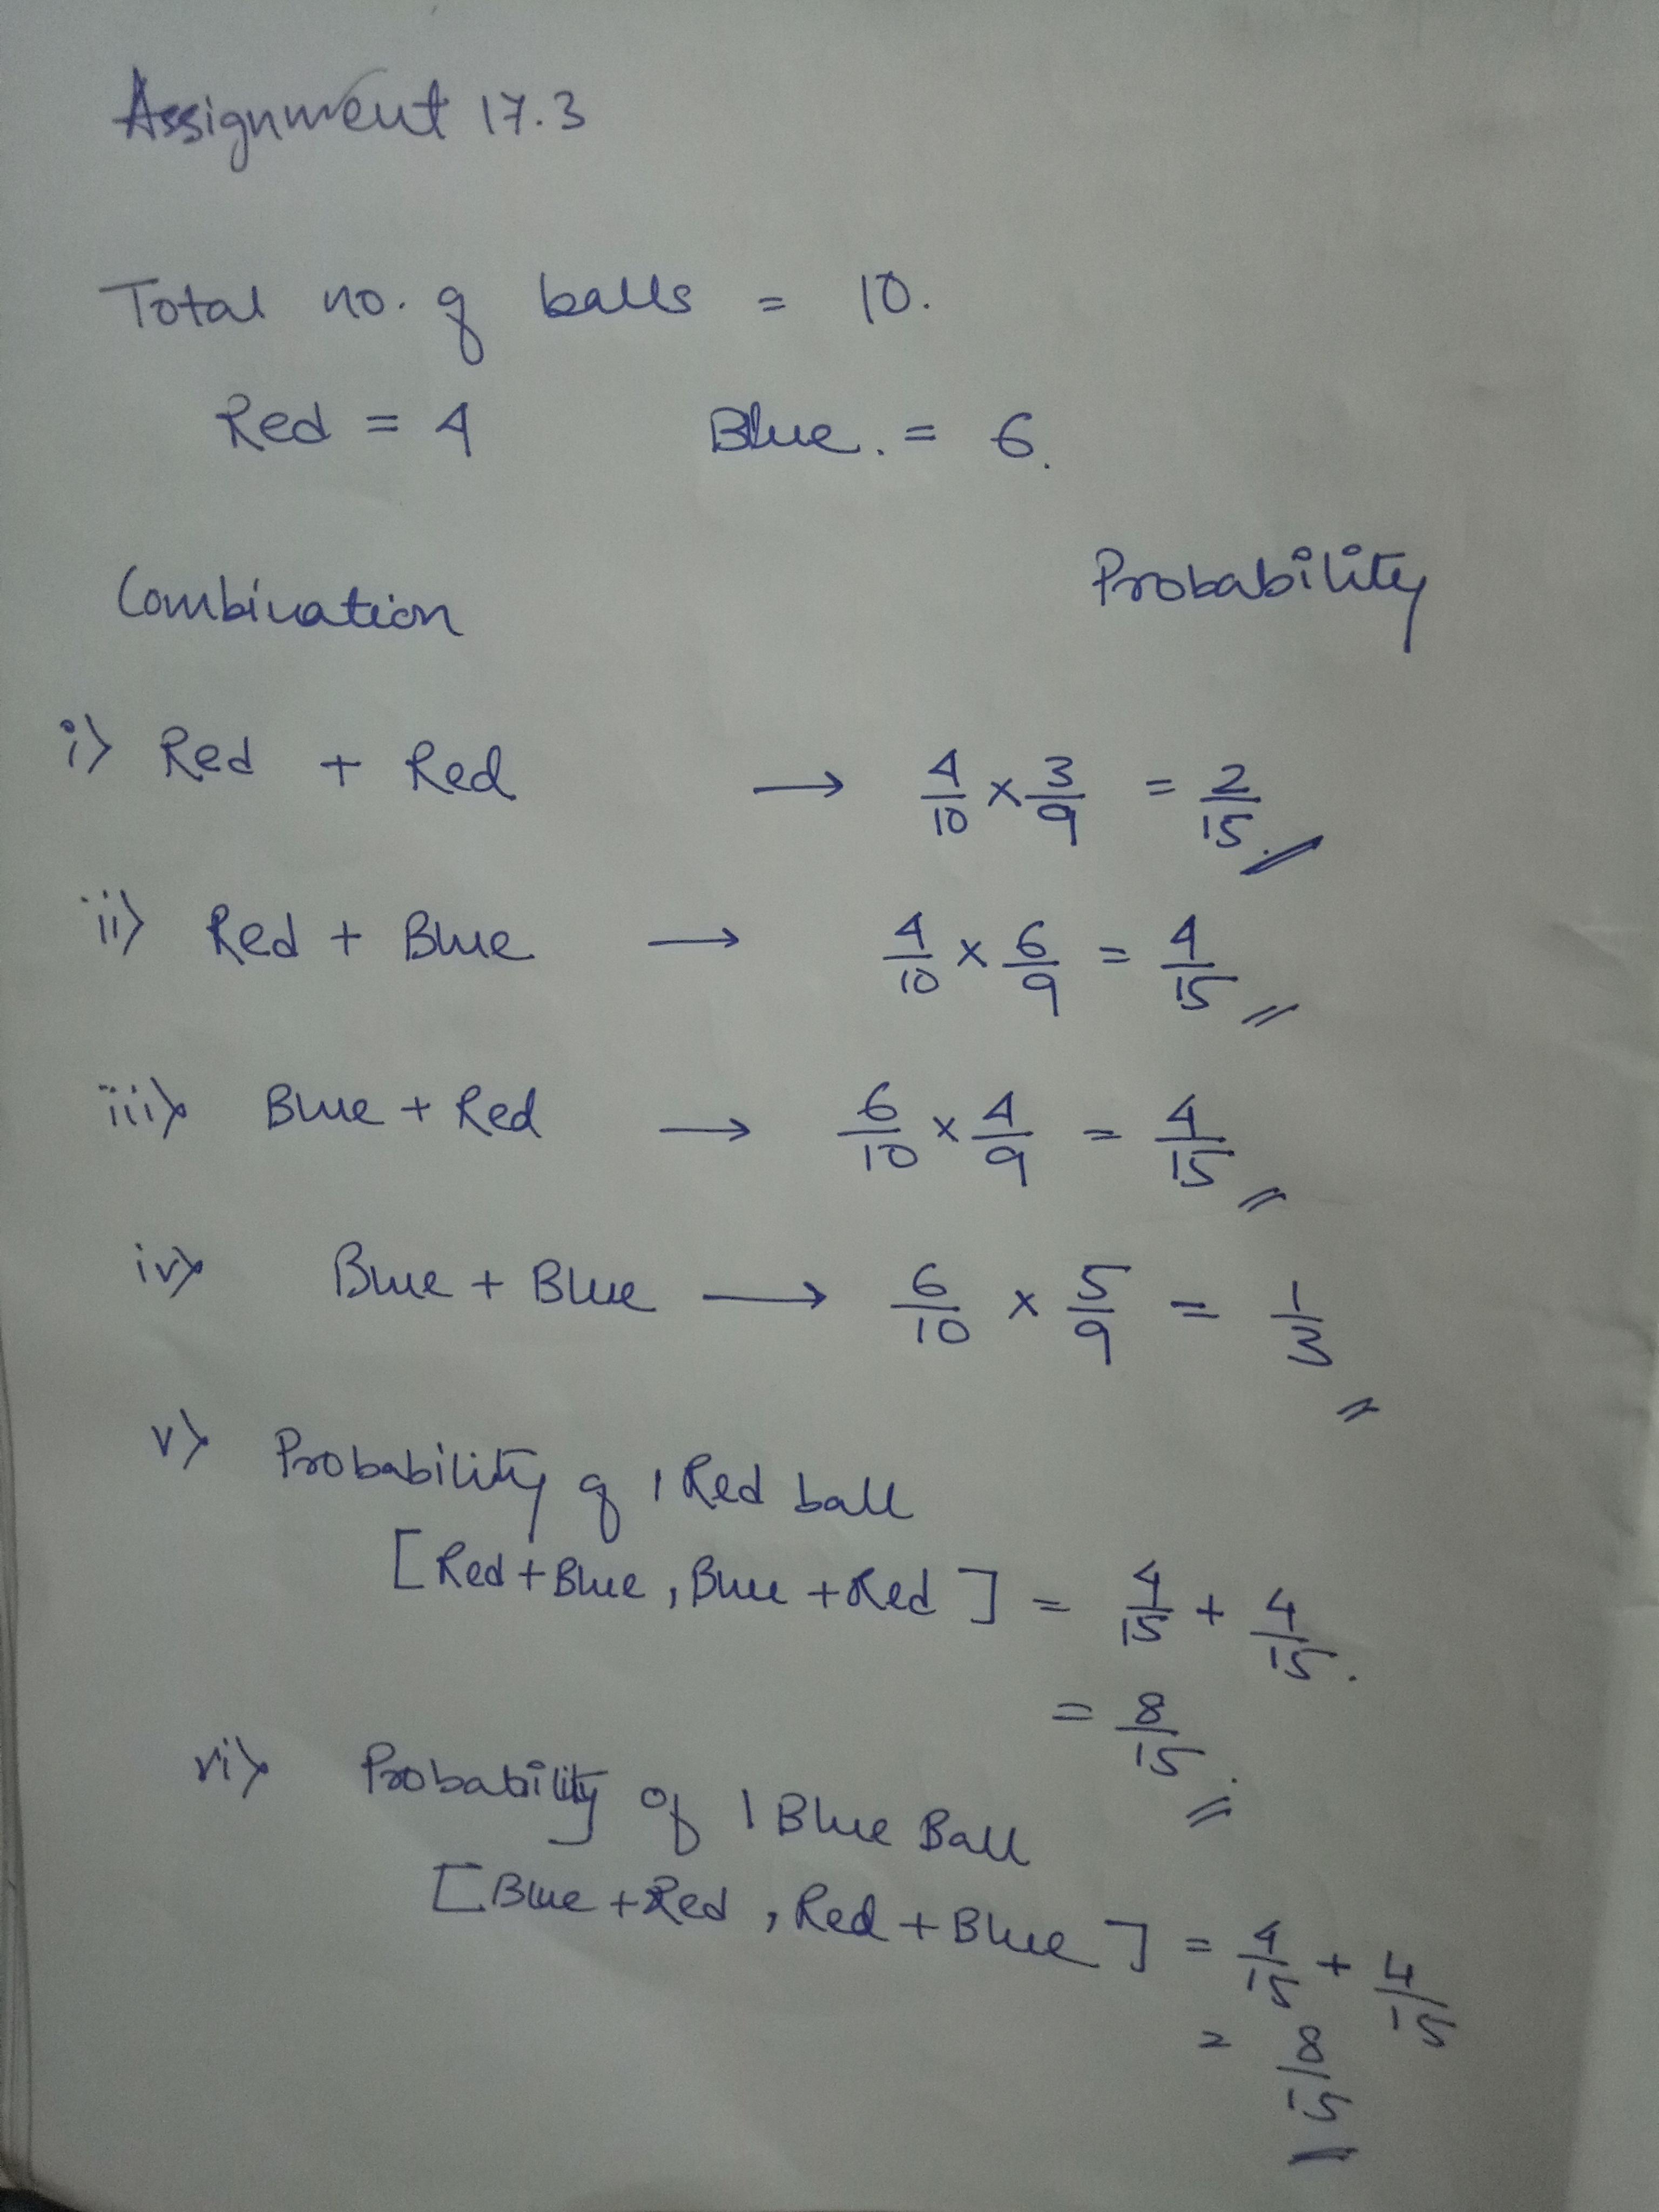 Assignment 17.3
Total no. of balls = 10.
Red = 4 Blue. = 6.
Combination Probability
i) Red + Red → 4/10 × 3/9 = 2/15.
ii) Red + Blue → 4/10 × 6/9 = 4/15
iii) Blue + Red → 6/10 × 4/9 = 4/15
iv) Blue + Blue → 6/10 × 5/9 = 1/3
v) Probability of 1 Red ball
[Red + Blue, Blue + Red] = 4/15 + 4/15.
= 8/15.
vi) Probability of 1 Blue Ball
[Blue + Red, Red + Blue] = 4/15 + 4/15
= 8/15